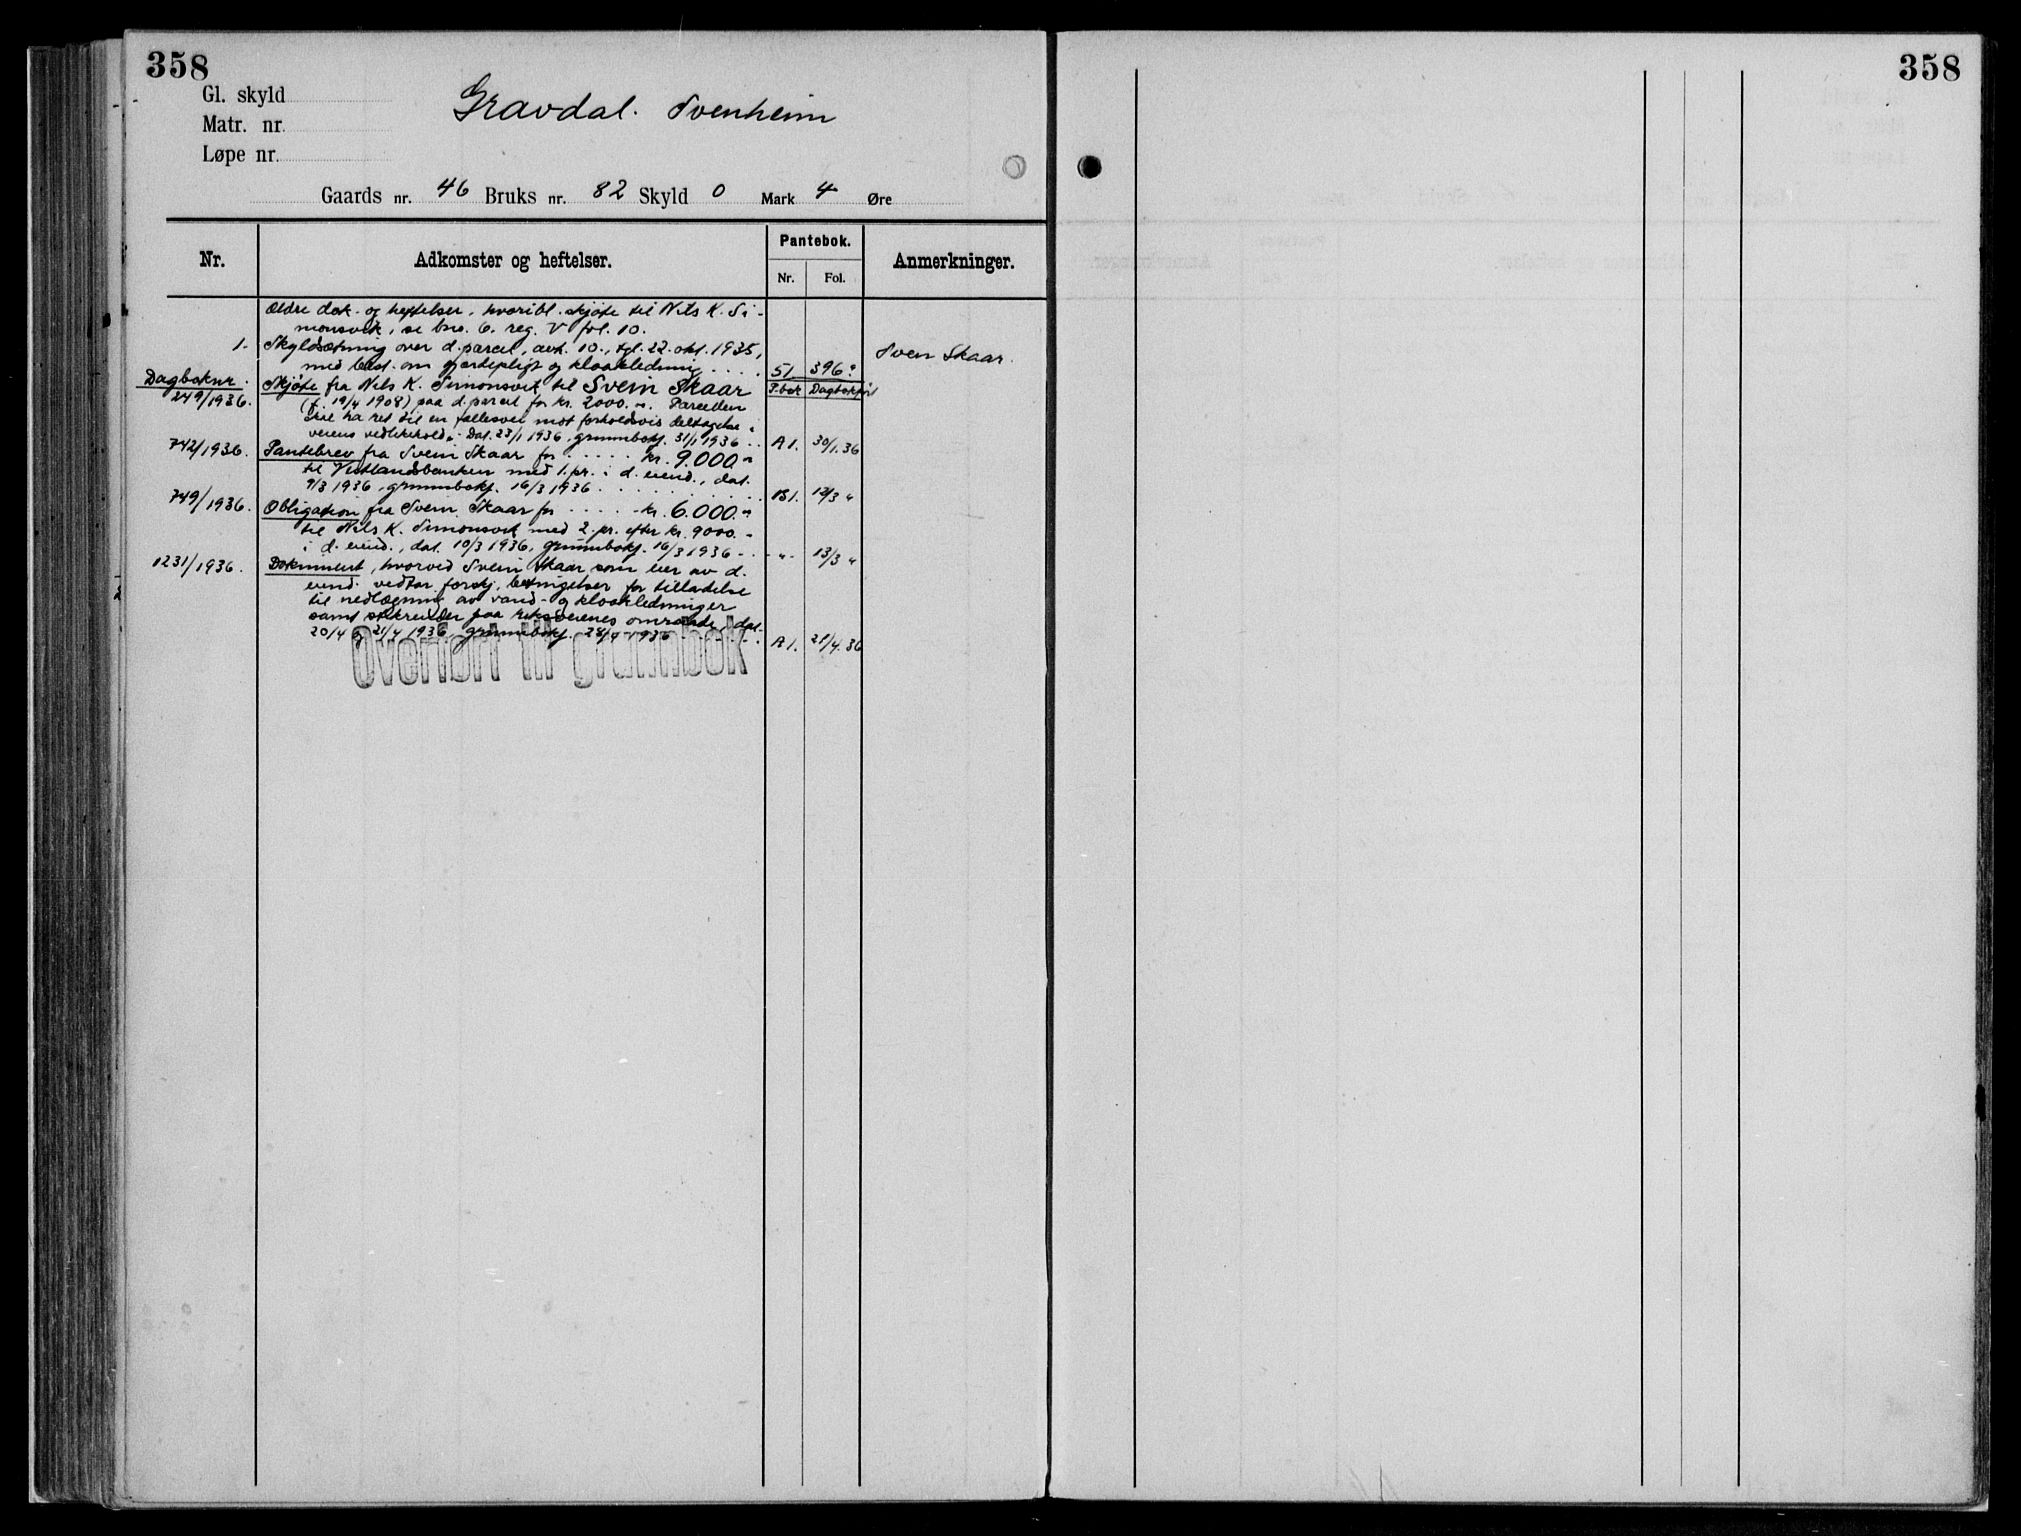 358
358
Gl. skyld
Matr. nr.
Løpe nr.
Gravdal. Svenheim
Gaards nr. 46 Bruks nr. 82 Skyld 0 Mark 4 Øre
Nr.
Adkomster og heftelser.
Pantebok.
Nr. Fol.
Anmerkninger.
Ældre dok. og heftelser, hvoribl. skjøte til Nils K. Si-
monsvik, se bno. 6. reg. V fol. 10.
1. Skyldsætning over d. parcel, avh. 10., tgl. 22. okt. 1935,
med best. om gjerdepligt og kloakledning . . . . 51. 396
Sven Skaar.
Dagboknr. P.bok Dagbokført
249/1936. Skjøte fra Nils K. Simonsvik til Svein Skaar
(f. 19/4 1908) paa d. parcel for kr. 2000.-. Parcellen
skal ha ret til en fællesvei mot forholdsvis deltagelse i
veiens vedlikehold. Dat. 23/1 1936, grunnbokf. 31/1 1936 . . A 1. 30/1.36
742/1936. Pantebrev fra Svein Skaar for . . . . . kr. 9.000.-
til Vestlandsbanken med 1. pr. i d. eiend., dat.
9/3 1936, grunnbokf. 16/3 1936 . . . . . . . . B 1. 12/3 "
749/1936. Obligation fra Svein Skaar for . . . . . kr. 6.000.-
til Nils K. Simonsvik med 2. pr. efter kr. 9000.-
i d. eiend., dat. 10/3 1936, grunnbokf. 16/3 1936 - - - " - 13/3 "
1231/1936. Dokument, hvorved Svein Skaar som eier av d.
eiend. vedtar forskj. betingelser for tilladelse
til nedlægning av vand- og kloakledninger
samt stikrender paa riksveienes omraade, dat.
20/4 og 21/4 1936, grunnbokf. 28/4 1936 - . A 1. 21/4.36
Overført til grunnbok